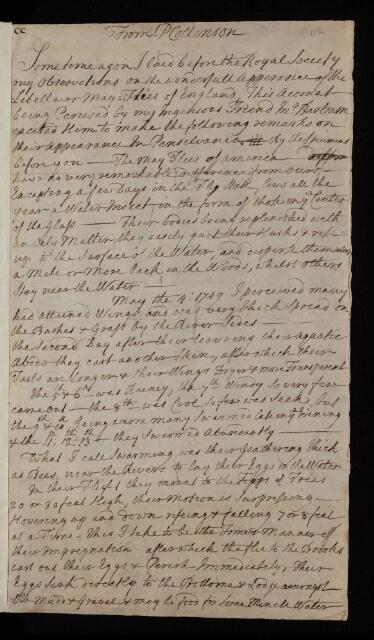 From P Collinson
Sometime agon I laid before the Royal Society
my Observations on the wonderfull Apperance of the
Libella or May Flies of England, This Account
being Perused by my Ingenious Friend Mr Bartram
excited Him to make the following remarks on
their Appearance In Pensilvania By the
before you — The May Flies of America
have no very remarkable difference from ours
Excepting a few Days in the Fly State, lives all the
year a Water Insect in the form of those in the Center
of the Glass — Their bodies being replenished with
an Matter, they easily quit their Husks &
up to the Surface of the Water, and disperse themselves
a Mile or More back in the Woods, whilst others
stay near the Water —
May the 4: 1749 I perceived many
had attained Wings and was very thick spread on
the Bushes & Grass By the River Sides —
the Second Day after their leaveing their aquatic
Abode they cast another Skin, after which their
Tails are longer & their Wings dryer & more Transparent
The 5th & 6th was Rainey, the 7th Windy So very few
came out — the 8th was Cool So few was Seen, but
the 9 & 10 being warm many swarmed Each Evening
& the 11: 12: 13 — they swarmed Abundantly
What I call Swarming was their Gathering thick
as Bees, near the Rivers to lay their Eggs in the Water
In their Flight they mount to the Tops of Trees
20 or 30 feet High, their Motion is Surprising
Hovering up and down rising & falling 7 or 8 feet
at a Time, this I take to be the time & Manner of
their Impregnation after which they flie to the Brooks
cast out their Eggs & Perish Immediately, Their
Eggs sink directly to the Bottome & Lodge amongst
the Mudd & Gravel & may be Food for some Minute Water